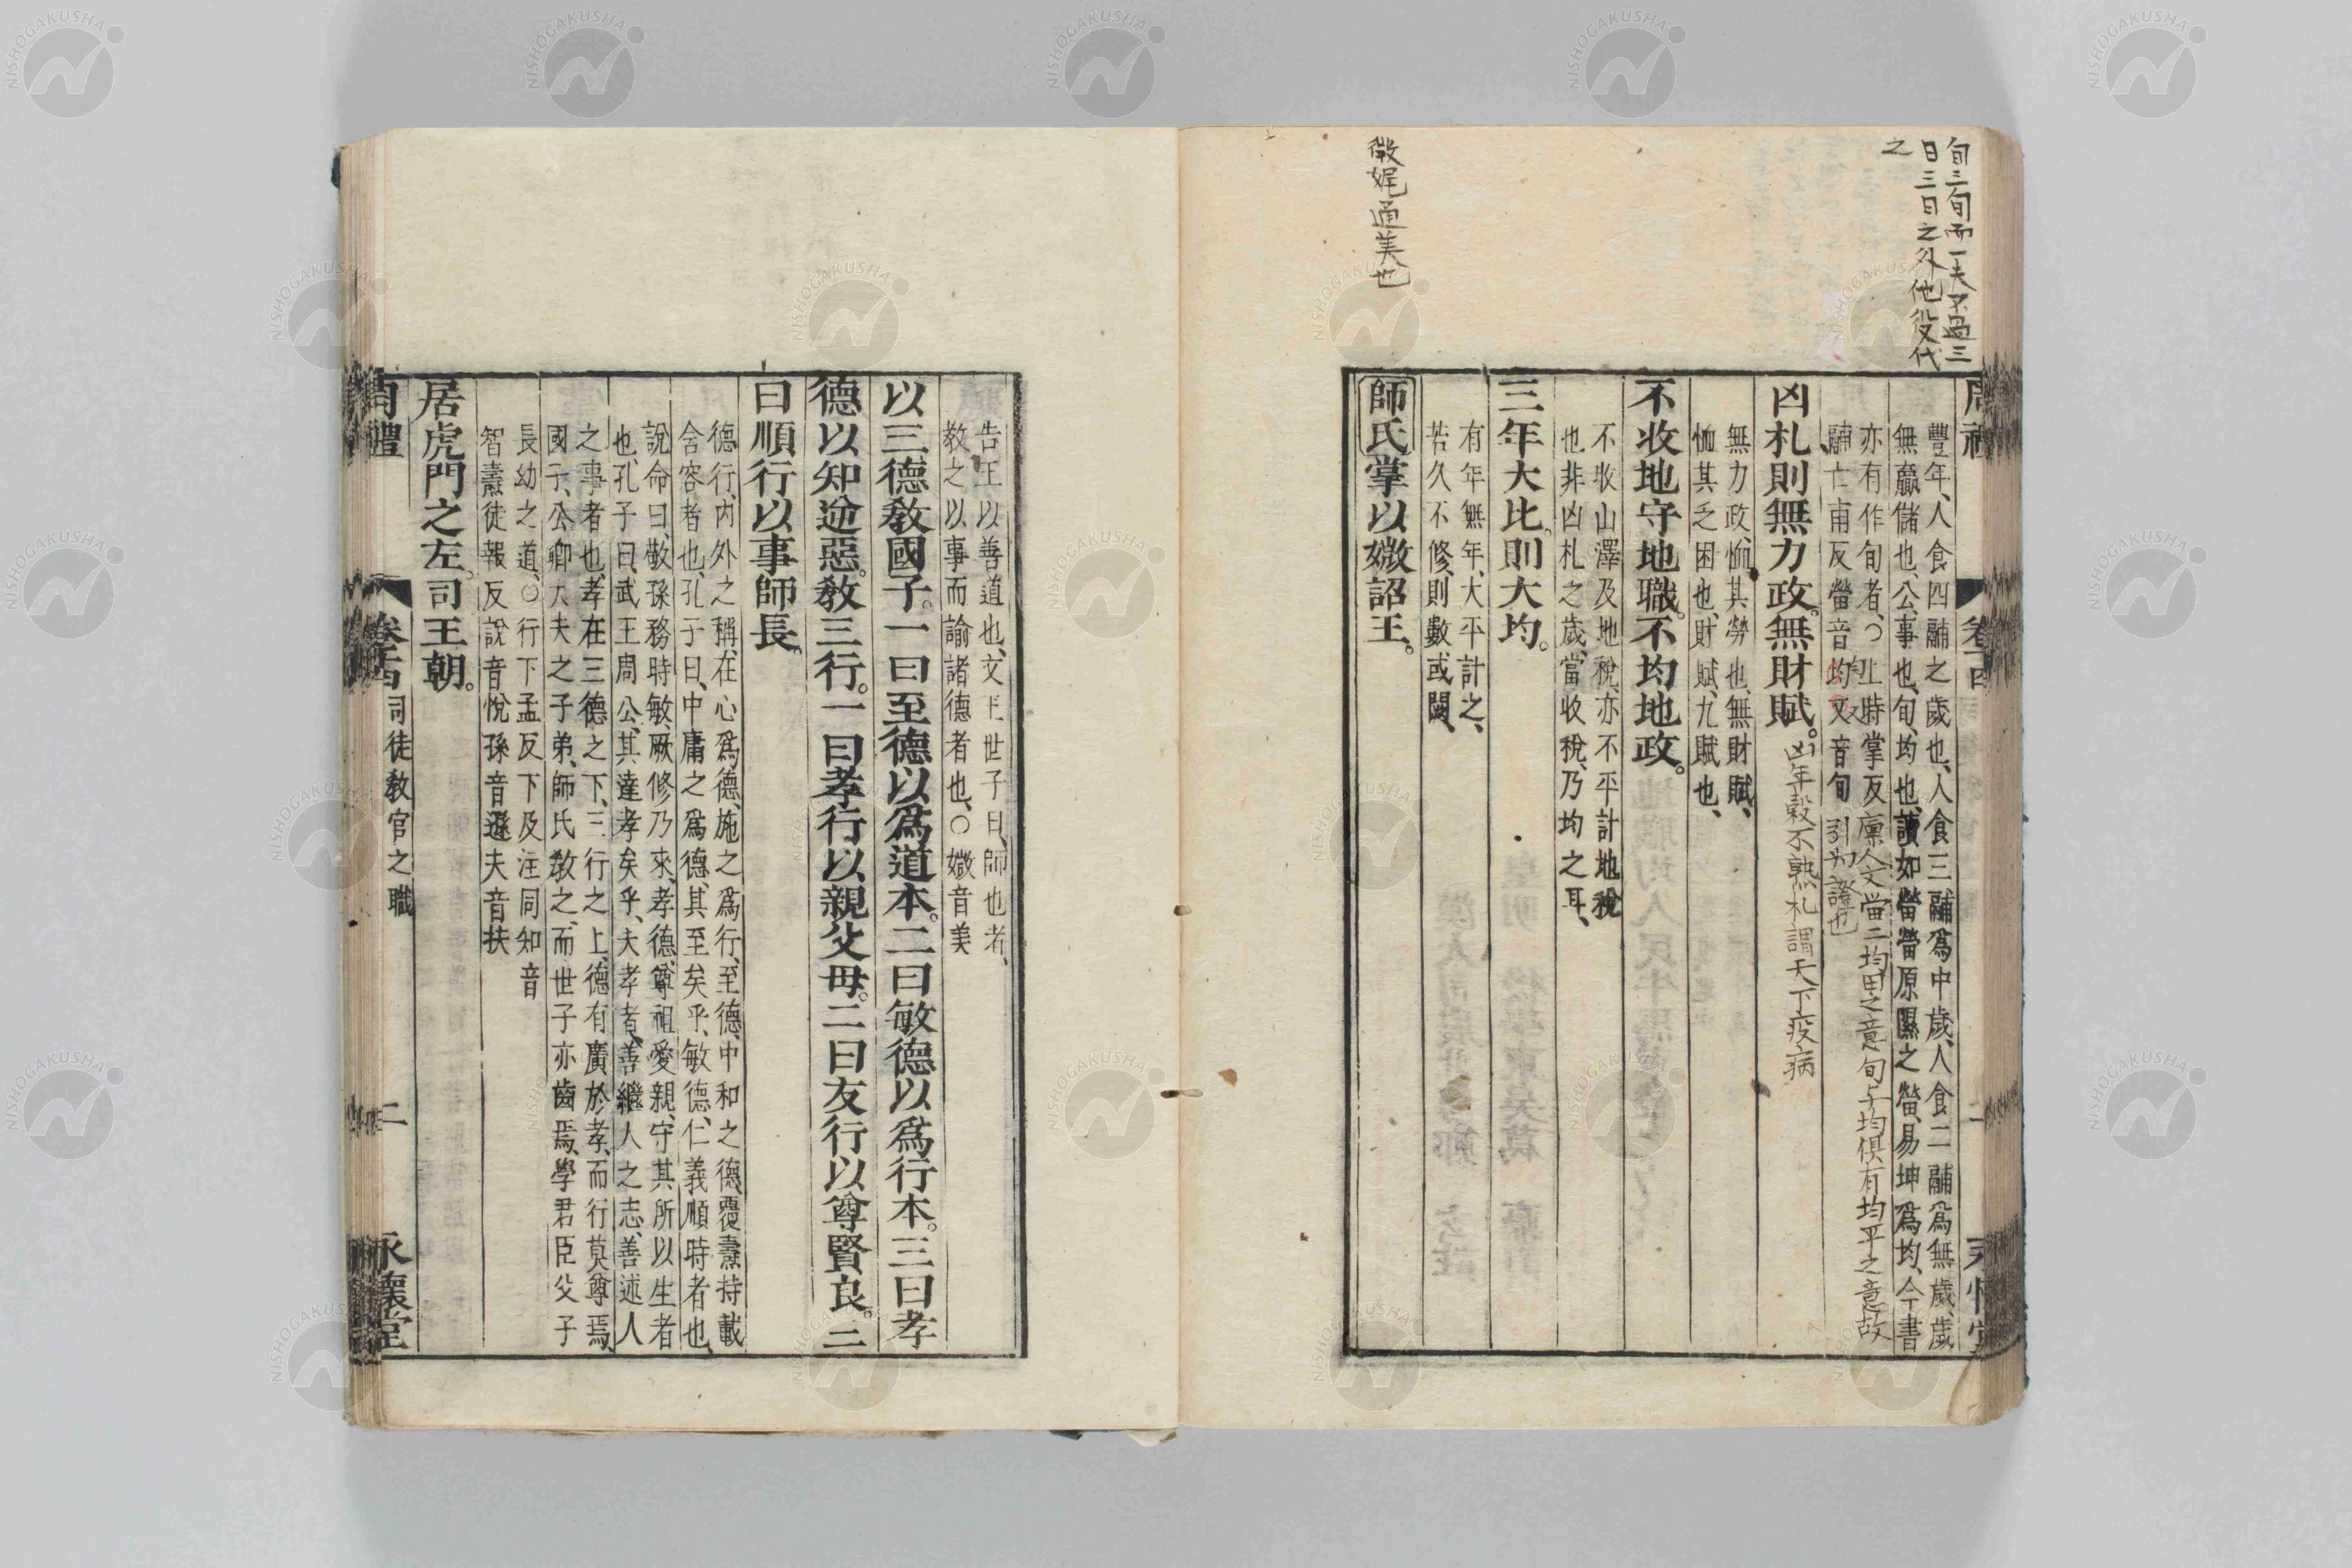 旬三旬而一夫不過三
日三日之外他役代
之
媺娓通美也
豐年、人食四鬴之歲也、人食三鬴爲中歲、人食二鬴爲無歲、歲
無贏儲也、公、事也、旬、均也、讀如㽦㽦原隰之㽦、易坤爲均、今書
亦有作旬者、○上時掌反
廩人文當二均田之意旬与均俱有均平之意故
鬴亡甫反㽦音均又音旬
引为證也
凶札則無力政。無財賦。
凶年穀不熟札謂天下疫病
無力政、恤其勞也、無財賦、
恤其乏困也、財賦、九賦也、
不收地守地職。不均地政。
不收山澤及地稅、亦不平計地稅
也、非凶札之歲、當收稅、乃均之耳、
三年大比。則大均。
有年無年、大平計之、
若久不修、則數或闕、
師氏掌以媺詔王。
告王以善道也、文王世子曰、師也者、
敎之以事而諭諸德者也、○媺音美
以三德敎國子。一曰至德以爲道本。二曰敏德以爲行本。三曰孝
德以知逆惡。敎三行。一曰孝行以親父母。二曰友行以尊賢良。三
曰順行以事師長。
德行、內外之稱、在心爲德、施之爲行、至德、中和之德、覆燾持載
含容者也、孔子曰、中庸之爲德、其至矣乎、敏德、仁義順時者也、
說命曰、敬孫務時敏、厥修乃來、孝德、尊祖愛親、守其所以生者
也、孔子曰、武王周公、其達孝矣乎、夫孝者、善繼人之志、善述人
之事者也、孝在三德之下、三行之上、德有廣於孝、而行莫尊焉、
國子、公卿大夫之子弟、師氏敎之、而世子亦齒焉、學君臣父子
長幼之道、○行下孟反下及注同知音
智燾徒報反說音悅孫音遜夫音扶
居虎門之左。司王朝。
周禮
卷十四
司徒敎官之職
二
永懷堂